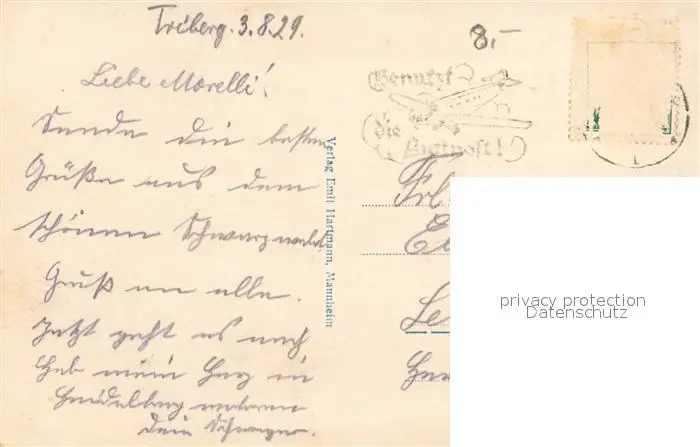 Triberg. 3.8.29.
8.-
Liebe Morelli!
Sende dir besten
Grüße aus dem
schönen Schwarzwald.
Gruß an alle.
Jetzt geht es nach
Hab mein Herz in
Heidelberg verloren
Dein
Verlag Emil Hartmann, Mannheim
Benutzt
die
Luftpost!
Frl
privacy protection
Datenschutz